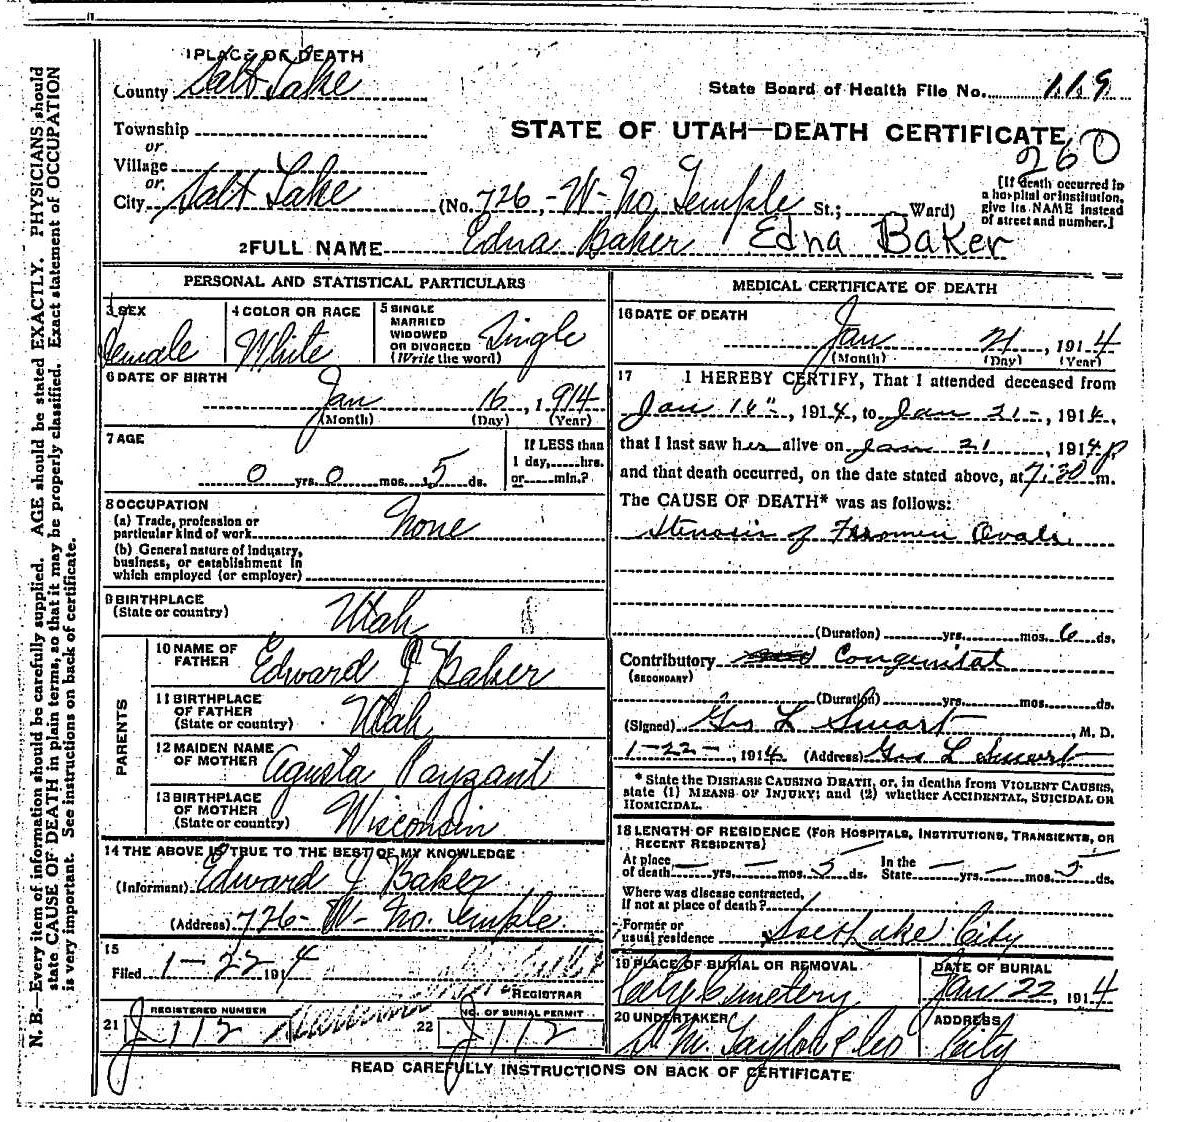 1 PLACE OF DEATH
County Salt Lake
State Board of Health File No. 119
Township
or
STATE OF UTAH—DEATH CERTIFICATE
260
Village
or
City Salt Lake (No. 726, - W- No. Temple St.; Ward)
[If death occurred in a hospital or institution, give its NAME instead of street and number.]
2 FULL NAME Edna Baker Edna Baker
PERSONAL AND STATISTICAL PARTICULARS
3 SEX
Female
4 COLOR OR RACE
White
5 SINGLE
MARRIED
WIDOWED
OR DIVORCED
(Write the word)
Single
6 DATE OF BIRTH
Jan 16, 1914
(Month) (Day) (Year)
7 AGE
0 yrs. 0 mos. 5 ds.
If LESS than
1 day, hrs.
or min.?
8 OCCUPATION
(a) Trade, profession or
particular kind of work None
(b) General nature of industry,
business, or establishment in
which employed (or employer)
9 BIRTHPLACE
(State or country) Utah
PARENTS
10 NAME OF
FATHER Edward J Baker
11 BIRTHPLACE
OF FATHER
(State or country) Utah
12 MAIDEN NAME
OF MOTHER Agusta Paygant
13 BIRTHPLACE
OF MOTHER
(State or country) Wisconsin
14 THE ABOVE IS TRUE TO THE BEST OF MY KNOWLEDGE
(Informant) Edward J Baker
(Address) 726- W- No. Temple
15
Filed 1-22 1914
REGISTRAR
REGISTERED NUMBER
21 J 112
NO. OF BURIAL PERMIT
22 J 112
MEDICAL CERTIFICATE OF DEATH
16 DATE OF DEATH
Jan 21, 1914
(Month) (Day) (Year)
17 I HEREBY CERTIFY, That I attended deceased from
Jan 16", 1914, to Jan 21-, 1914,
that I last saw her alive on Jan 21 1914
and that death occurred, on the date stated above, at 7:30 P m.
The CAUSE OF DEATH* was as follows:
Stenosis of Foromen Ovali
(Duration) yrs. mos. 6 ds.
Contributory Congenital
(SECONDARY)
(Duration) yrs. mos. ds.
(Signed) Geo L Smart, M. D.
1-22-, 1914 (Address) Geo L Smart
* State the DISEASE CAUSING DEATH, or, in deaths from VIOLENT CAUSES,
state (1) MEANS OF INJURY; and (2) whether ACCIDENTAL, SUICIDAL OR
HOMICIDAL.
18 LENGTH OF RESIDENCE (FOR HOSPITALS, INSTITUTIONS, TRANSIENTS, OR
RECENT RESIDENTS)
At place
of death — yrs. — mos. 5 ds.
In the
State — yrs. — mos. 5 ds.
Where was disease contracted,
if not at place of death?
Former or
usual residence Salt Lake City
19 PLACE OF BURIAL OR REMOVAL
City Cemetery
DATE OF BURIAL
Jan 22, 1914
20 UNDERTAKER
S M Taylor & Co
ADDRESS
City
READ CAREFULLY INSTRUCTIONS ON BACK OF CERTIFICATE
N. B.—Every item of information should be carefully supplied. AGE should be stated EXACTLY. PHYSICIANS should
state CAUSE OF DEATH in plain terms, so that it may be properly classified. Exact statement of OCCUPATION
is very important. See instructions on back of certificate.